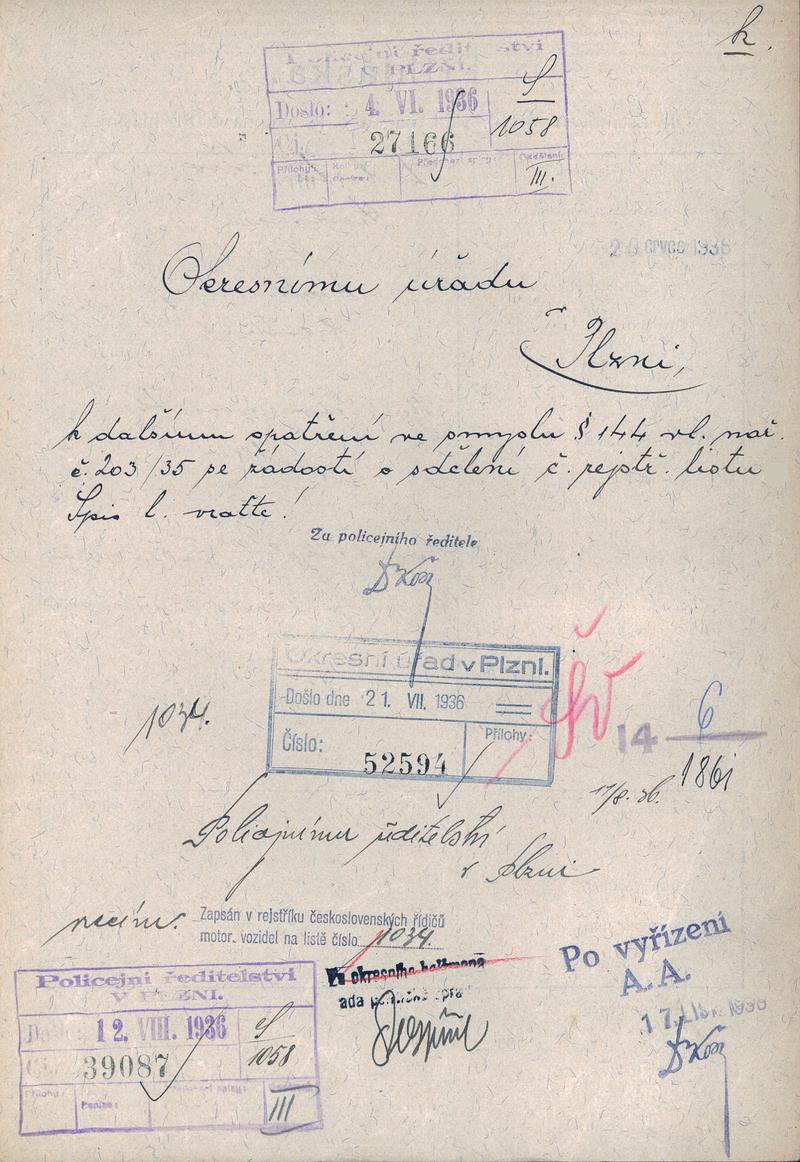 k.
Policejní ředitelství
V PLZNI.
Došlo: 4. VI. 1936
S
1058
Čj. 27166
Přílohy:
III.
20 ČRVCE 1936
Okresnímu úřadu
v Plzni,
k dalšímu opatření ve smyslu § 144 vl. nař.
č. 203/35 se žádostí o sdělení č. rejstř. listu
Spis l. vraťte!
Za policejního ředitele
Okresní úřad v Plzni.
Došlo dne 21. VII. 1936
Číslo: 52594
Přílohy:
1034.
14 6
1861
17/8. 36.
Policejnímu ředitelství
v Plzni
Zapsán v rejstříku československých řidičů
motor. vozidel na listě číslo 1034.
Za okresního hejtmana
Po vyřízení
A. A.
Policejní ředitelství
V PLZNI.
Došlo: 12. VIII. 1936
S
1058
Čj. 39087
Přílohy:
III